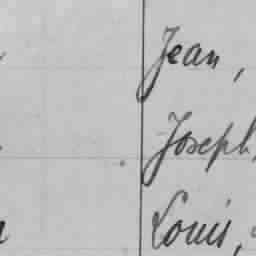 Jean,
Joseph,
Louis,